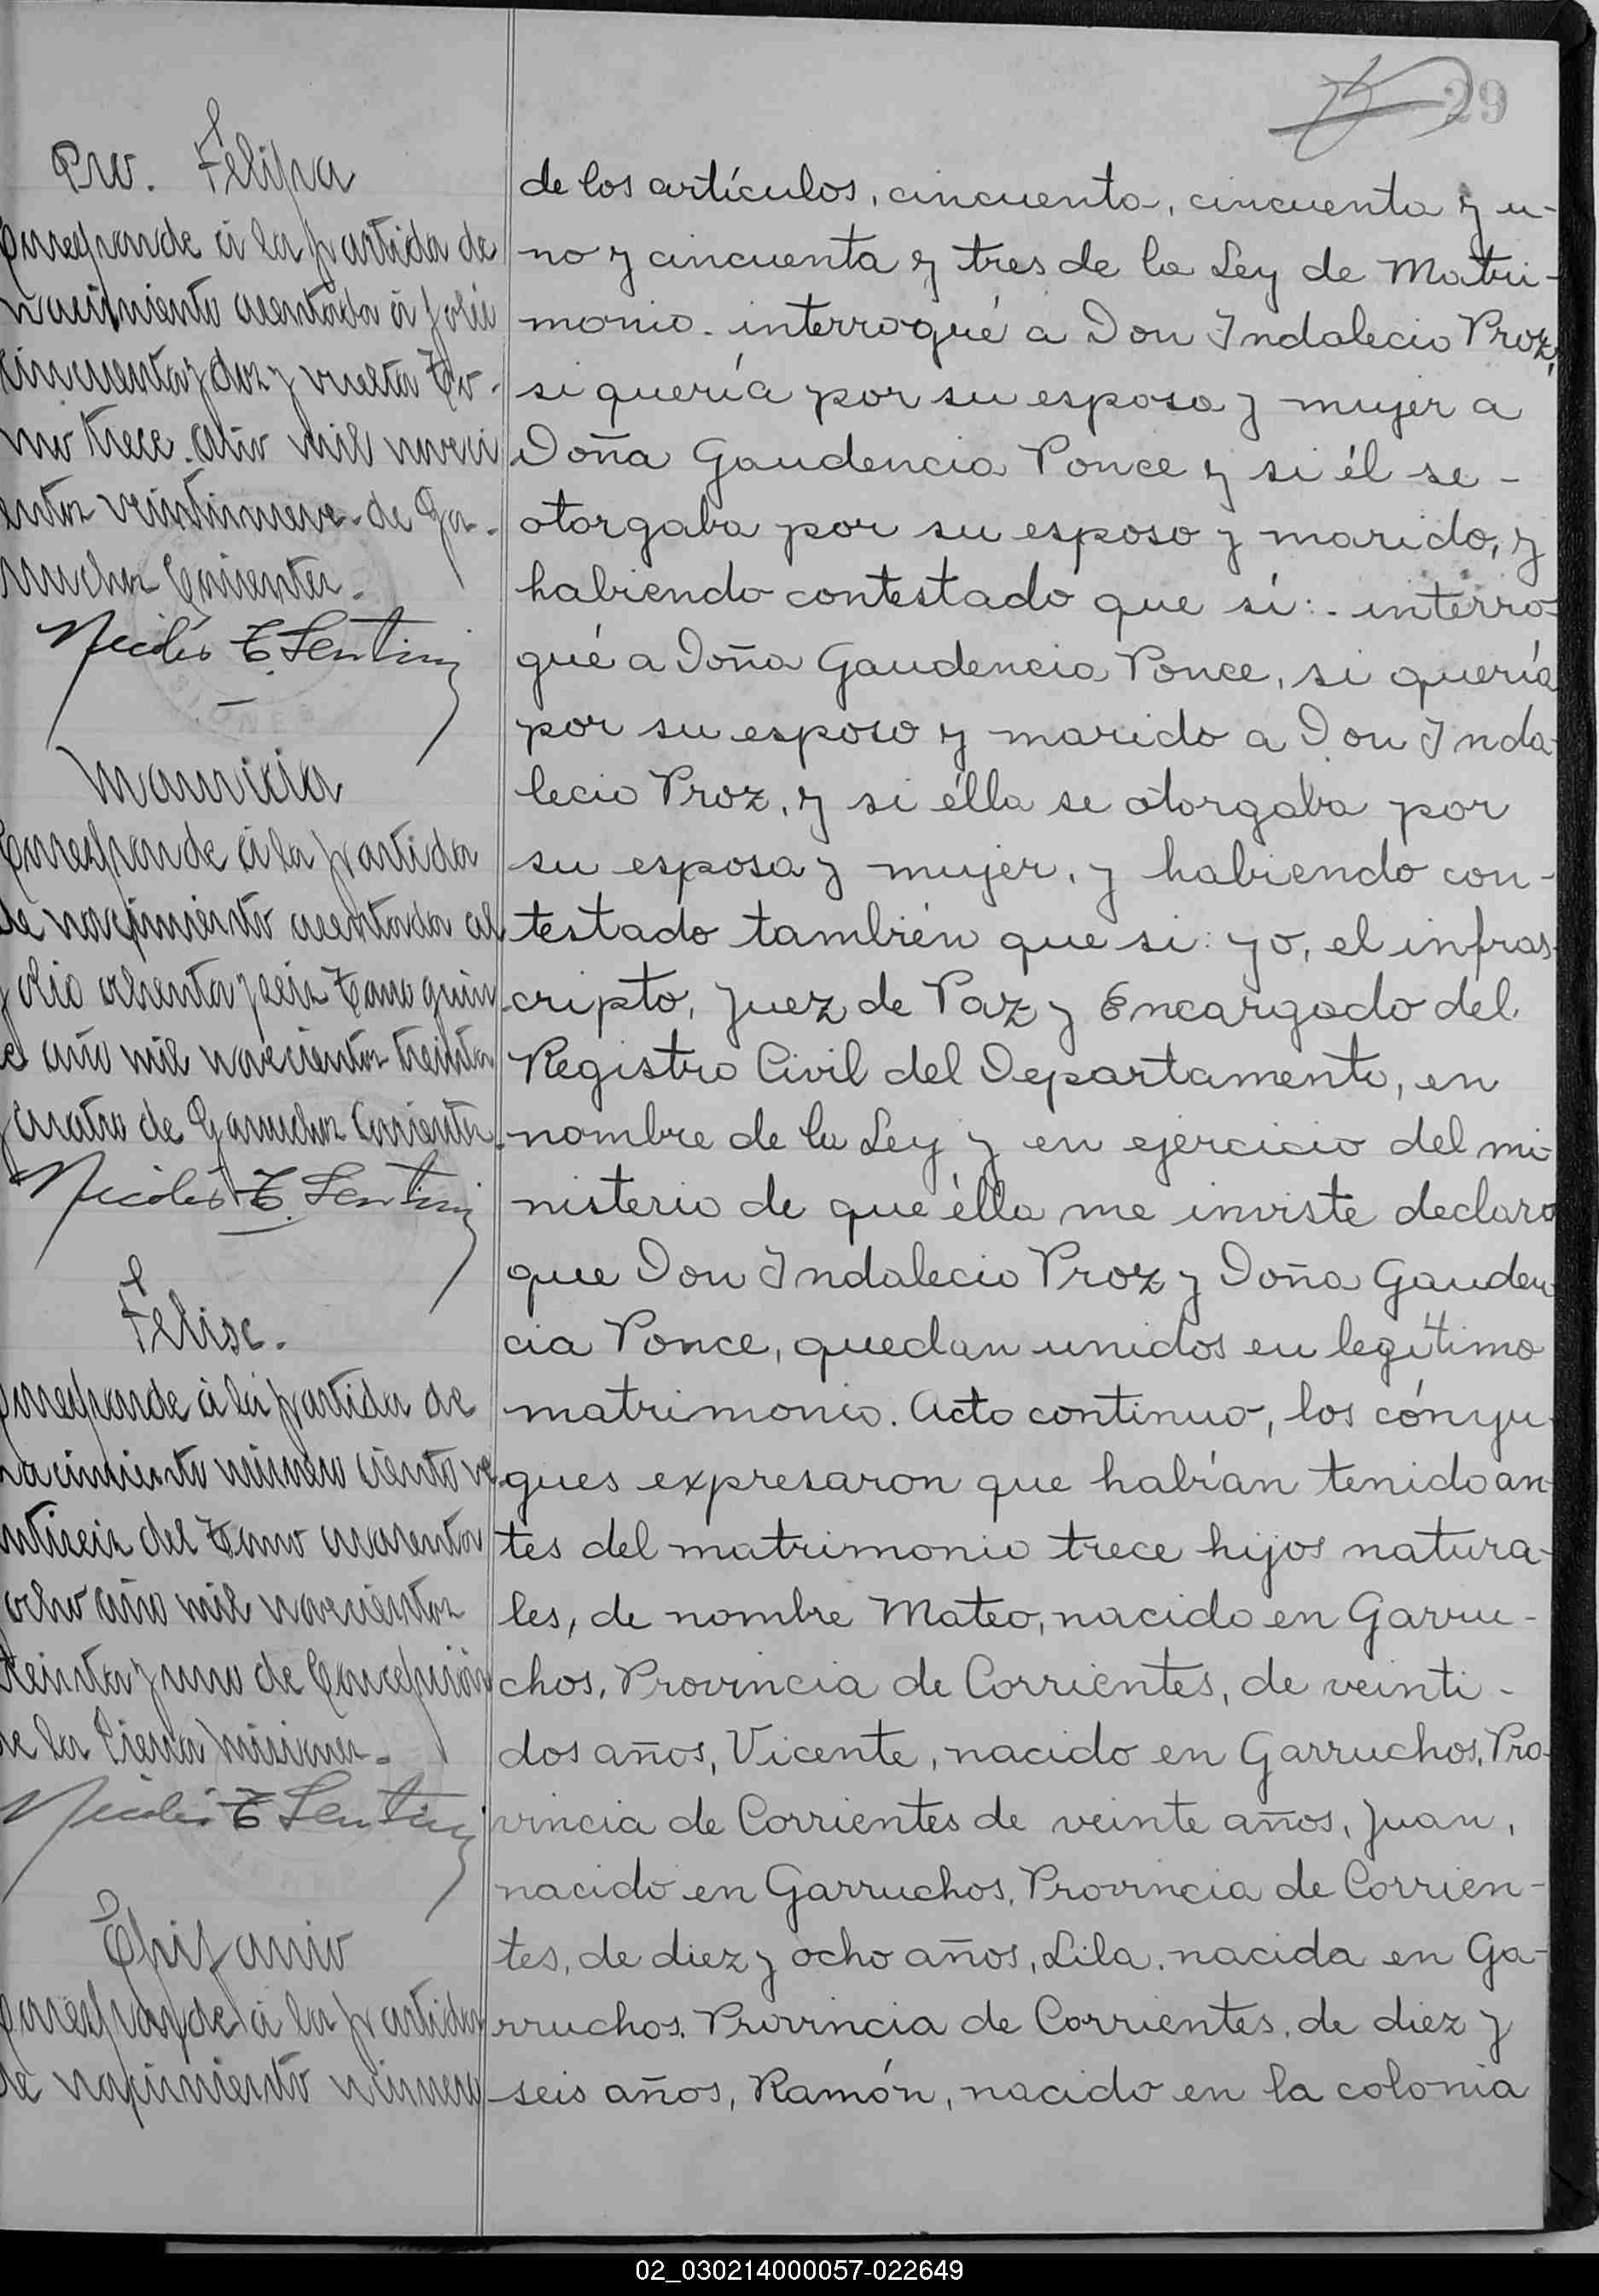 29
Pro. Felipa
Corresponde á la partida de
nacimiento asentada á folio
cincuenta y dos y vuelta To-
mo trece. año mil noveci
entos veintinueve. de Ga-
rruchos Corrientes.
Nicolás T. Sentini
Mauricia
Corresponde á la partida
de nacimiento asentada al
folio ochenta y seis Tomo quin
ce año mil novecientos treinta
y cuatro de Garruchos Corrientes.
Nicolás T. Sentini
Felisa.
Corresponde á la partida de
nacimiento número ciento ve
intiseis del Tomo cuarenta
ocho año mil novecientos
treinta y uno de Concepción
de la Sierra Misiones.
Nicolás T Sentini
Epifanio
Corresponde á la partida
de nacimiento número
de los artículos, cincuenta, cincuenta y u-
no y cincuenta y tres de la Ley de Matri-
monio. interrogué a Don Indalecio Proz,
si quería por su esposa y mujer a
Doña Gaudencia Ponce y si él se -
otorgaba por su esposo y marido, y
habiendo contestado que sí:. interro-
gué a Doña Gaudencia Ponce, si quería
por su esposo y marido a Don Inda-
lecio Proz, y si élla se otorgaba por
su esposa y mujer, y habiendo con-
testado también que si: yo, el infras-
cripto, Juez de Paz y Encargado del
Registro Civil del Departamento, en
nombre de la Ley y en ejercicio del mi-
nisterio de que élla me inviste declaro
que Don Indalecio Proz y Doña Gauden
cia Ponce, quedan unidos en legítimo
matrimonio. Acto continuo, los cónyu-
gues expresaron que habían tenido an-
tes del matrimonio trece hijos natura-
les, de nombre Mateo, nacido en Garru-
chos, Provincia de Corrientes, de veinti-
dos años, Vicente, nacido en Garruchos, Pro-
vincia de Corrientes de veinte años, Juan,
nacido en Garruchos, Provincia de Corrien-
tes, de diez y ocho años, Lila, nacida en Ga-
rruchos, Provincia de Corrientes, de diez y
seis años, Ramón, nacido en la colonia
02_030214000057-022649